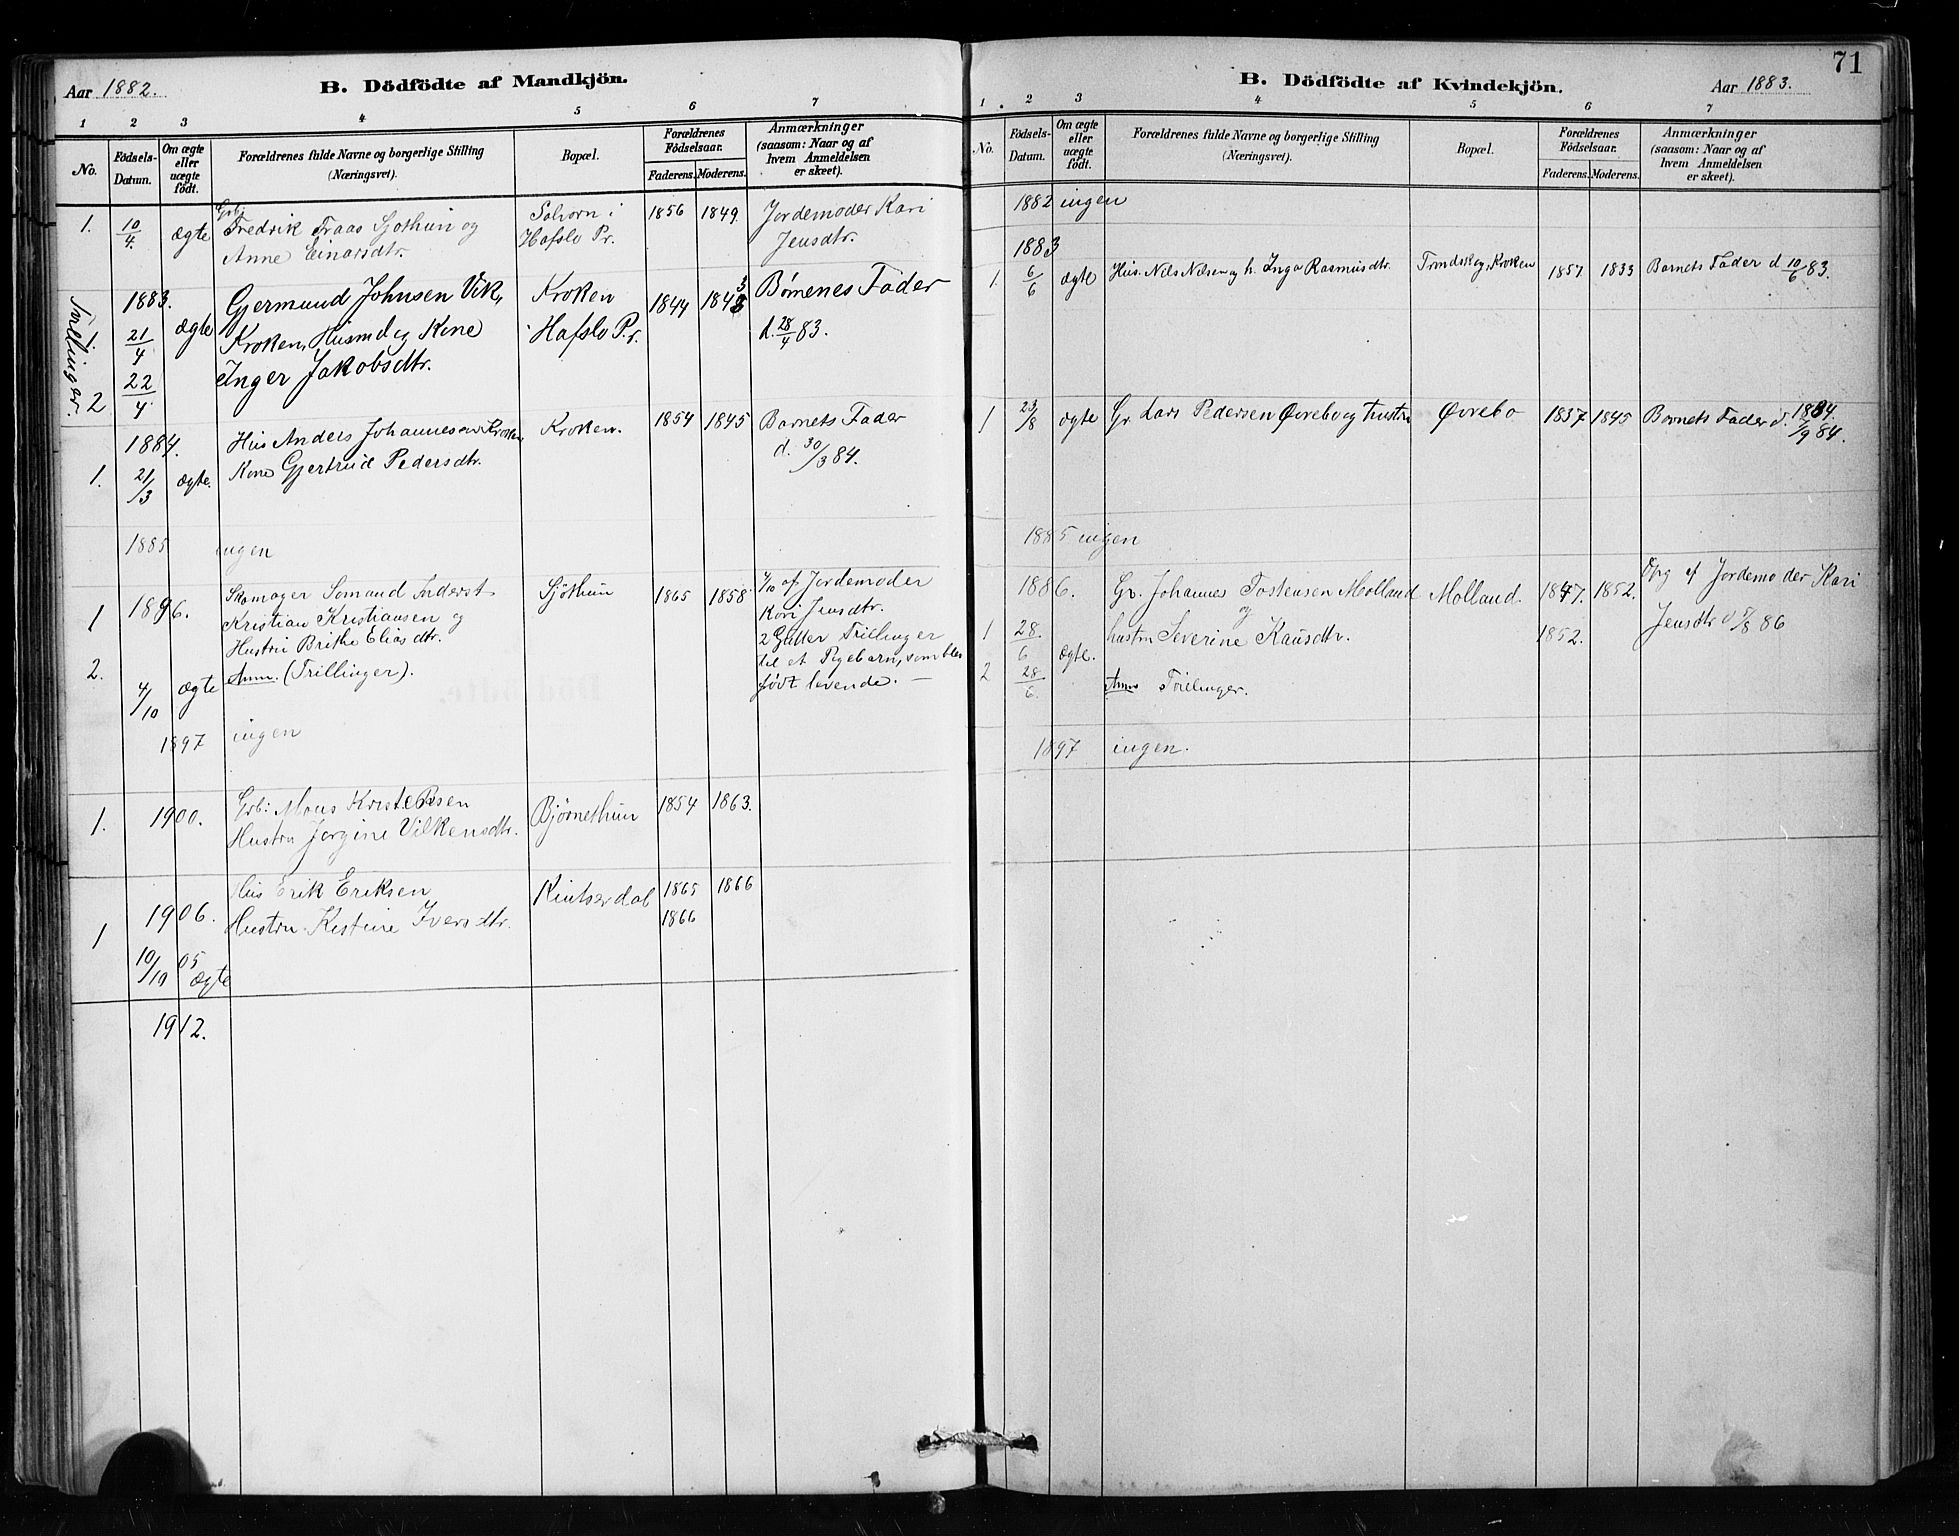 Aar 1882.
B. Dödfödte af Mandkjön.
1 2 3 4 5 6 7
No.
Födsels-Datum.
Om ægte eller uægte födt.
Forældrenes fulde Navne og borgerlige Stilling
(Næringsvei).
Bopæl.
Forældrenes Födselsaar.
Faderens. Moderens.
Anmærkninger
(saasom: Naar og af
hvem Anmeldelsen
er skeet).
1. 10/4 ægte
Grbr
Fredrik Traas Sjøthun og
Anne Einarsdtr.
Solvorn i
Hafslo Pr.
1856 1849.
Jordemoder Kari
Jensdtr.
Tvillinger.
1883.
1. 21/4 ægte
2 22/4
Gjermund Johnsen Vik,
Kroken, Husmd og Kone
Inger Jakobsdtr.
Kroken
Hafslo Pr.
1844 1843
Børnenes Fader
d. 28/4 83.
1884.
1. 21/3 ægte.
Hus Anders Johannesen Kroken,
Kone Gjertrud Pedersdtr.
Kroken.
1854 1845
Barnets Fader
d. 30/3 84.
1885 ingen
1 1896.
2. 4/10 ægte
Skomager Somand Inderst
Kristian Kristiansen og
Hustru Brithe Eliasdtr.
Anm. (Trillinger).
Sjöthun
1865 1858
4/10 af Jordemoder
Kari Jensdtr.
2 Gutter Trillinger
til et Pigebarn, som blev
født levende. —
1897 ingen
1. 1900.
Grbr: Mons
Hustru Jorgine Vilkensdtr.
Bjørnethun
1854 1863.
1 1906.
10/10 05 ægte
Hus Erik Eriksen
Hustru Kistine Iversdtr.
Kintserdal
1865 1866
1866
1912.
71
B. Dödfödte af Kvindekjön.
Aar 1883.
1 2 3 4 5 6 7
No.
Födsels-Datum.
Om ægte eller uægte födt.
Forældrenes fulde Navne og borgerlige Stilling
(Næringsvei).
Bopæl.
Forældrenes Födselsaar.
Faderens. Moderens.
Anmærkninger
(saasom: Naar og af
hvem Anmeldelsen
er skeet).
1882 ingen
1883
1. 6/6 ægte
Hus. Nils Nilsen og h. Inga Rasmusdtr.
Kroken
1857 1833
Barnets Fader d 10/6 83.
1 23/8 ægte
Gr. Lars Pedersen Øvrebo og
Øvrebo
1837 1845
1884.
Barnets Fader d. 1/9 84.
1885 ingen
1886.
1 28/6 ægte.
2 28/6.
Gr. Johannes Tostensen Molland
og
hustru Severine Kausdtr.
Anm Trillinger.
Molland.
1847. 1852.
1852.
af Jordemoder Kari
Jensdtr d 5/8 86
1897 ingen.